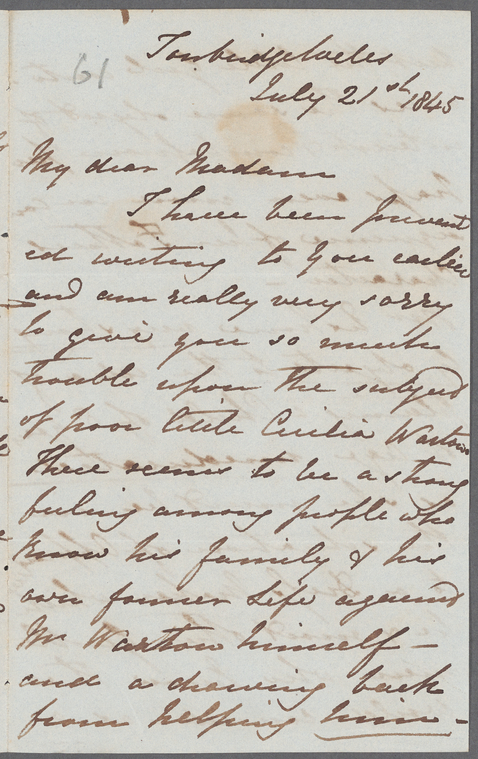 61
Tunbridge Wells
July 21st 1845
My dear Madam
I have been prevent
ed writing to you earlier
and am really very sorry
to give you so much
trouble upon the subject
of poor little Cecilia Warton
There seems to be a strong
feeling among people who
know his family & his
own former Life against
Mr Warton himself —
and a drawing back
from helping him —